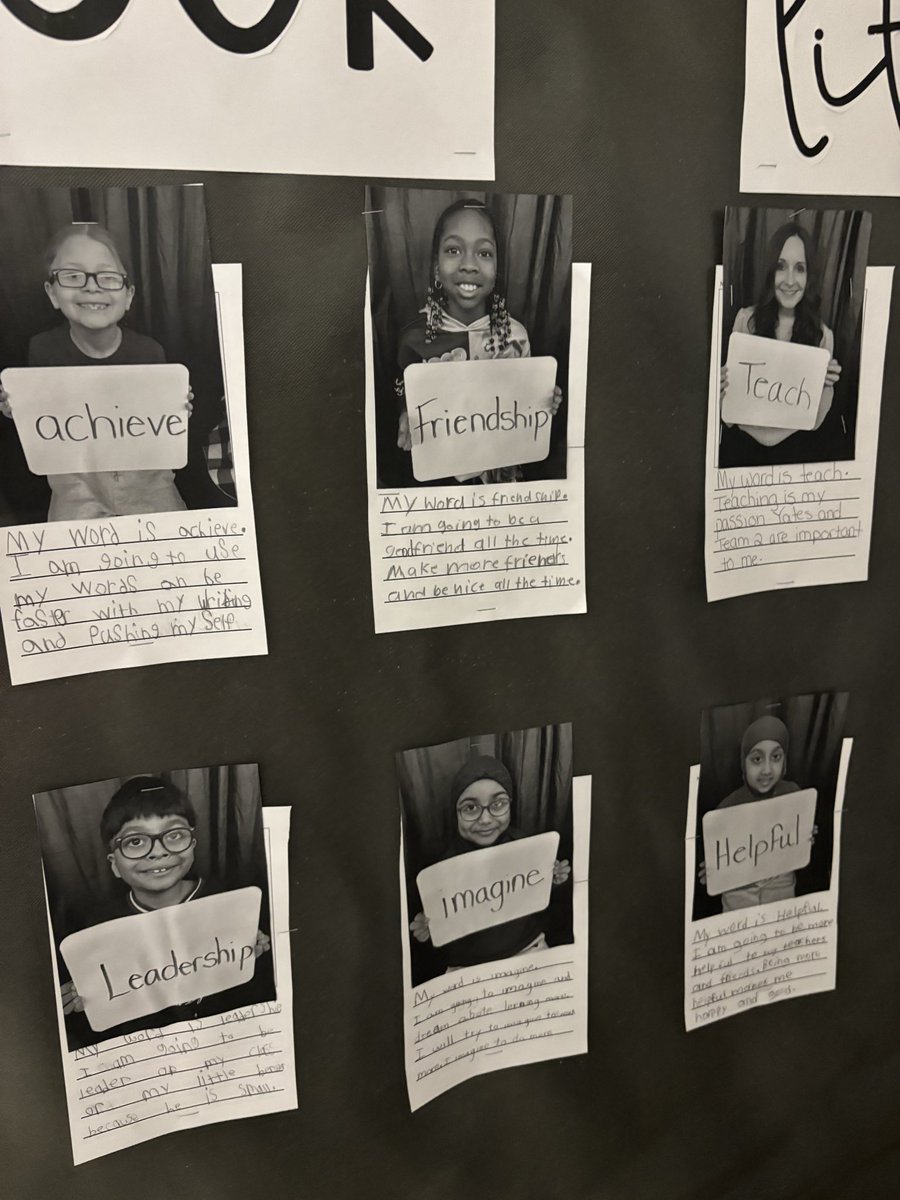 achieve
My Word is achieve.
I am going to use
my words an be
faster with my writing
and Pushing my Self
Friendship
My Word is friendship.
I am going to be a
goodfriend all the time.
Make more friends
and be nice all the time.
Teach
My word is teach.
Teaching is my
passion Yates and
Team 2 are important
to me.
Leadership
My word is leadership
I am going to be
leader of my class
or my little
because he is small.
imagine
My word is imagine.
I am going to imagine and
dream abote lerning more
I will try to imagine
more. I imagine to do more
Helpful
My word is Helpful.
I am going to be more
helpful to my teachers
and friends. Being more
helpful makes me
happy and good.